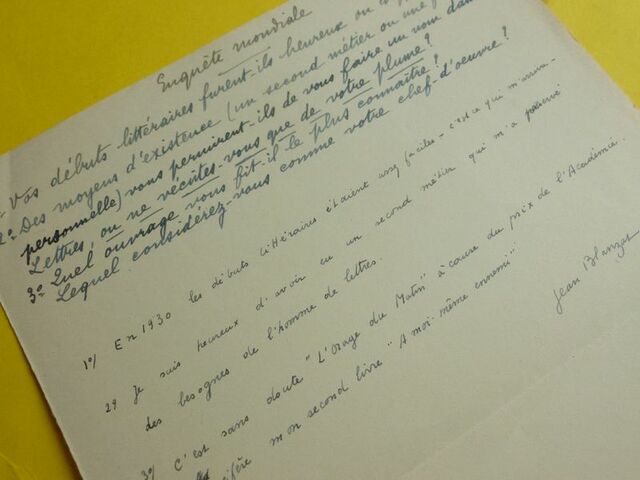 Enquête mondiale
Vos débuts littéraires furent-ils heureux ou
2º- Des moyens d'existence (un second métier ou une
personnelle) vous permirent-ils de vous faire un nom dans
Lettres, ou ne vécûtes-vous que de votre plume?
3º Quel ouvrage vous fit-il le plus connaître?
Lequel considérez-vous comme votre chef-d'oeuvre?
1º/ En 1930 les débuts littéraires étaient assez faciles - c'est ce qui
2º Je suis heureux d'avoir eu un second métier qui m'a
des besognes de l'homme de lettres.
3º/ C'est sans doute "L'Orage du Matin" à cause du prix de l'Académie.
mon second livre "A moi-même ennemi"
Jean Blanzat